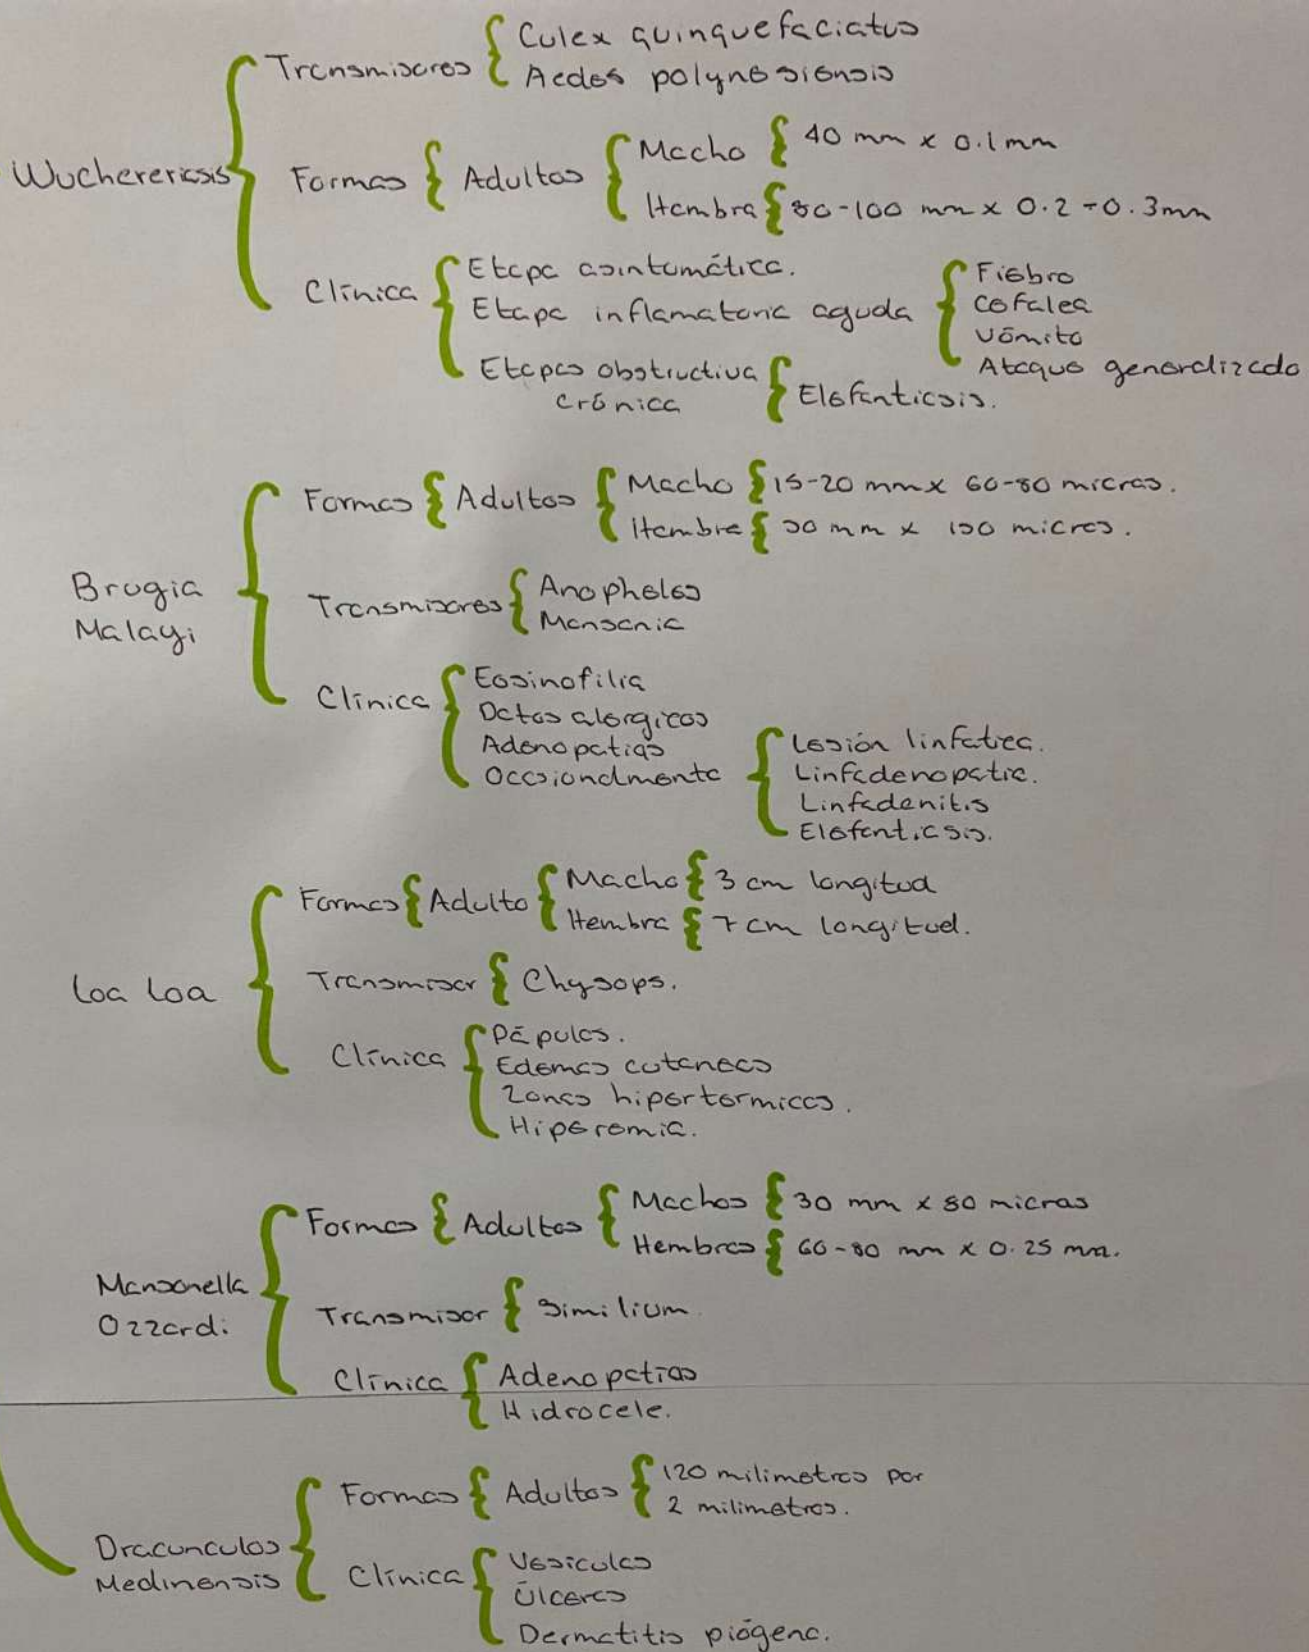 Wuchereriasis
Transmisores
Culex quinquefaciatus
Aedes polynesiensis
Formas
Adultos
Macho
40 mm x 0.1 mm
Hembra
80-100 mm x 0.2-0.3mm
Clínica
Etapa asintomática.
Etapa inflamatoria aguda
Fiebre
Cefalea
Vómito
Ataque generalizado
Etapas obstructiva
crónica
Elefantiasis.
Brugia
Malayi
Formas
Adultos
Macho
15-20 mm x 60-80 micras.
Hembra
mm x micras.
Transmisores
Anopheles
Mansonia
Clínica
Eosinofilia
Datos alergicos
Adenopatias
Occsionalmente
Lesión linfatica.
Linfadenopatia.
Linfadenitis
Elefantiasis.
Loa Loa
Formas
Adulto
Macho
3 cm longitud
Hembra
7 cm longitud.
Transmisor
Chysops.
Clínica
Pápulas.
Edemas cutaneos
Zonas hipertermicas.
Hiperemia.
Mansonella
Ozzardi
Formas
Adultos
Machos
30 mm x 80 micras
Hembras
60-80 mm x 0.25 mm.
Transmisor
Similium
Clínica
Adenopatias
Hidrocele.
Dracunculos
Medinensis
Formas
Adultos
120 milimetros por
2 milimetros.
Clínica
Vesiculas
Úlceras
Dermatitis piógena.